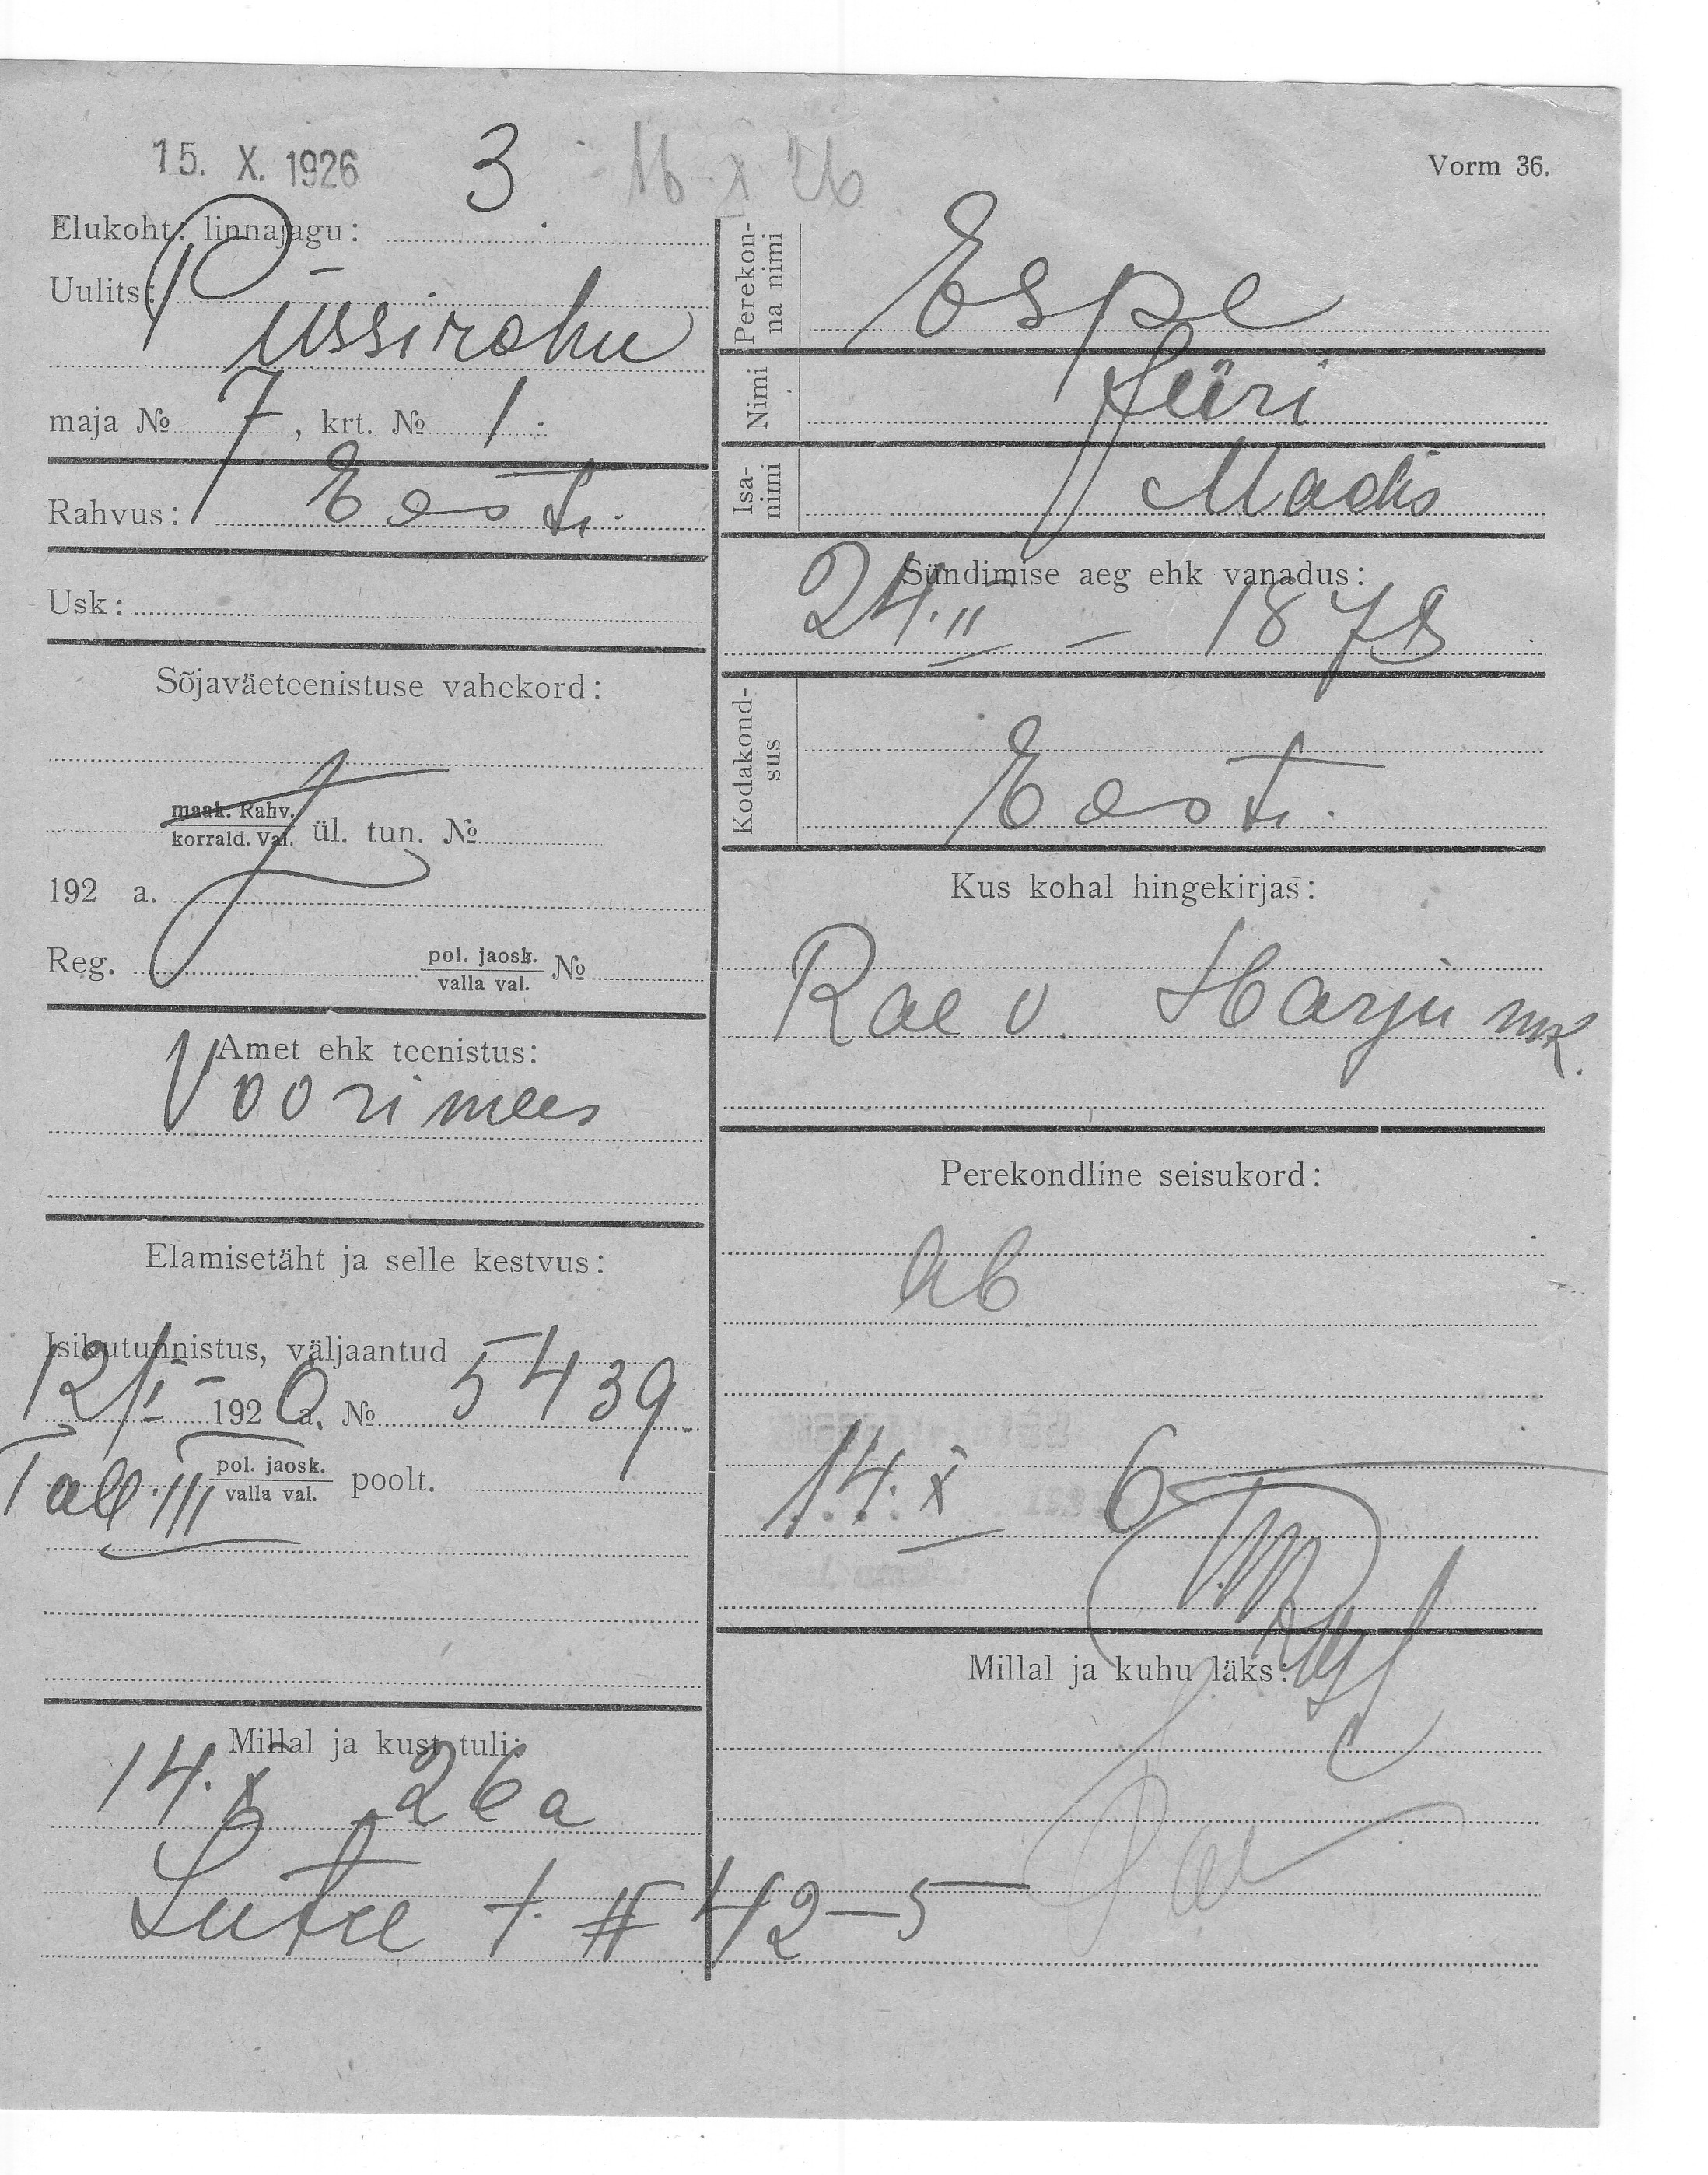 15. X. 1926 3. 16.X 26
Vorm 36.
Elukoht: linnajagu:
Uulits: Püssirohu
maja № 7, krt. № 1.
Rahvus: Eesti.
Usk:
Sõjaväeteenistuse vahekord:
maak. Rahv.
korrald. Val. ül. tun. №
192 a.
Reg. pol. jaosk. №
valla val.
Amet ehk teenistus:
Voorimees
Elamisetäht ja selle kestvus:
Isikutunnistus, väljaantud
12/I 1920 a. № 5439
Tall. III pol. jaosk. poolt.
valla val.
Millal ja kust tuli:
14. X 26 a
Lutre t. # 42–5
Perekonna nimi Espe
Nimi Jüri
Isanimi Madis
Sündimise aeg ehk vanadus:
24. II – 1878
Kodakondsus
Eesti.
Kus kohal hingekirjas:
Rae v. Harju mk.
Perekondline seisukord:
ab
14. X 6
Millal ja kuhu läks: